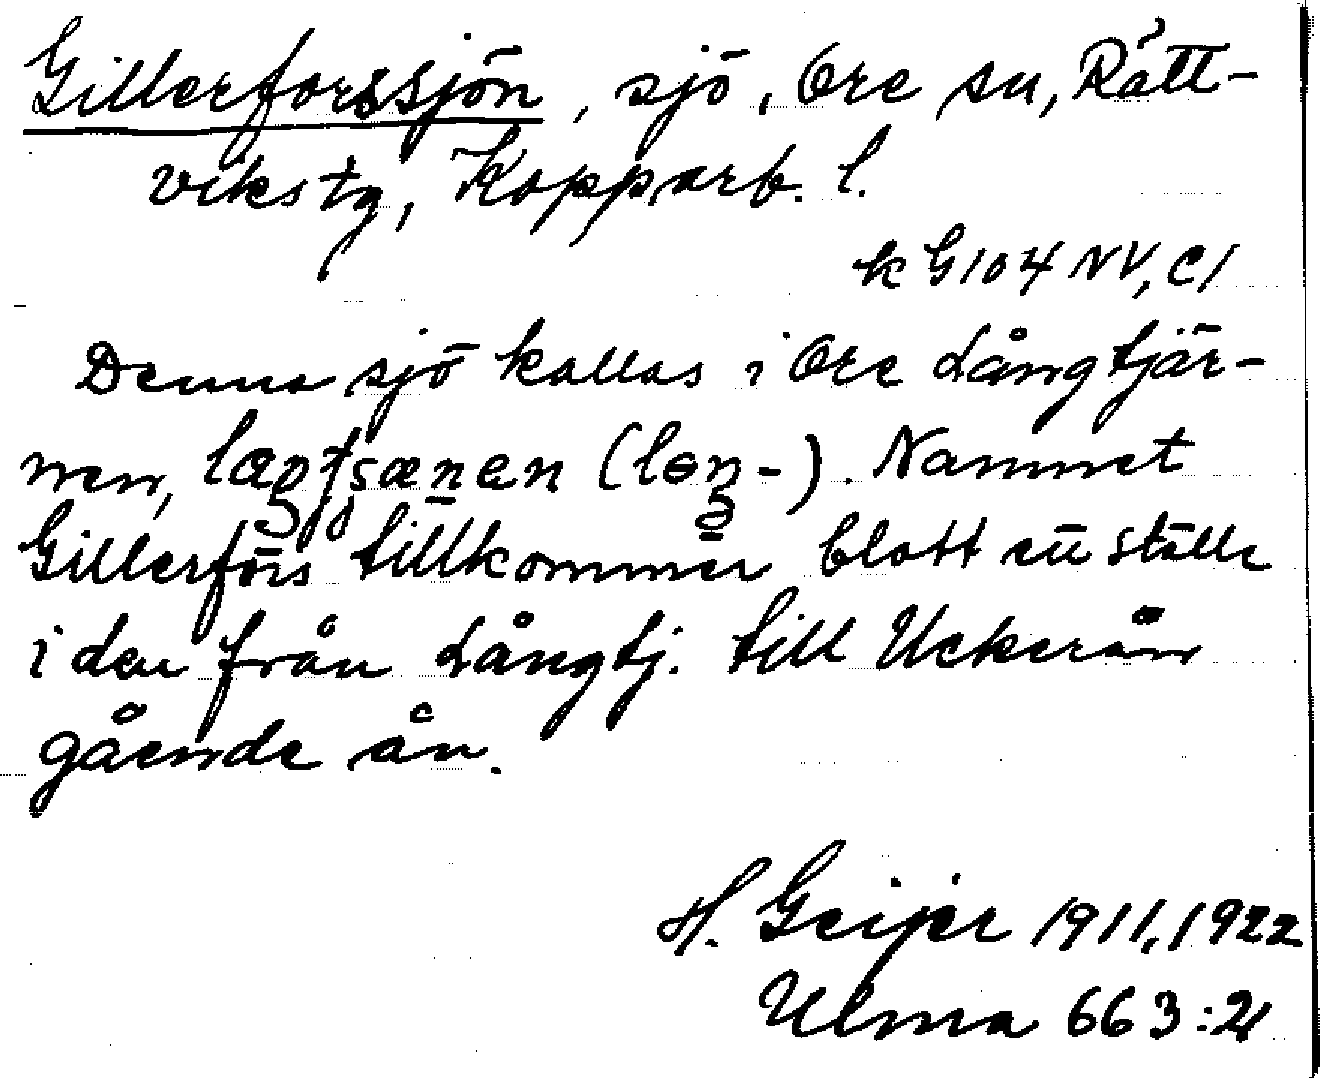 Gillerforssjön, sjö, Ore sn, Rätt-
vikstg, Kopparb. l.
k G104 NV, C1
Denna sjö kallas i Ore Långtjär-
nen, (lɵŋ-). Namnet
Gillerfors tillkommer blott ett ställe
i den från Långtj. till Ackerån
gående ån.
H. Geijer 1911, 1922
Ulma 663:21